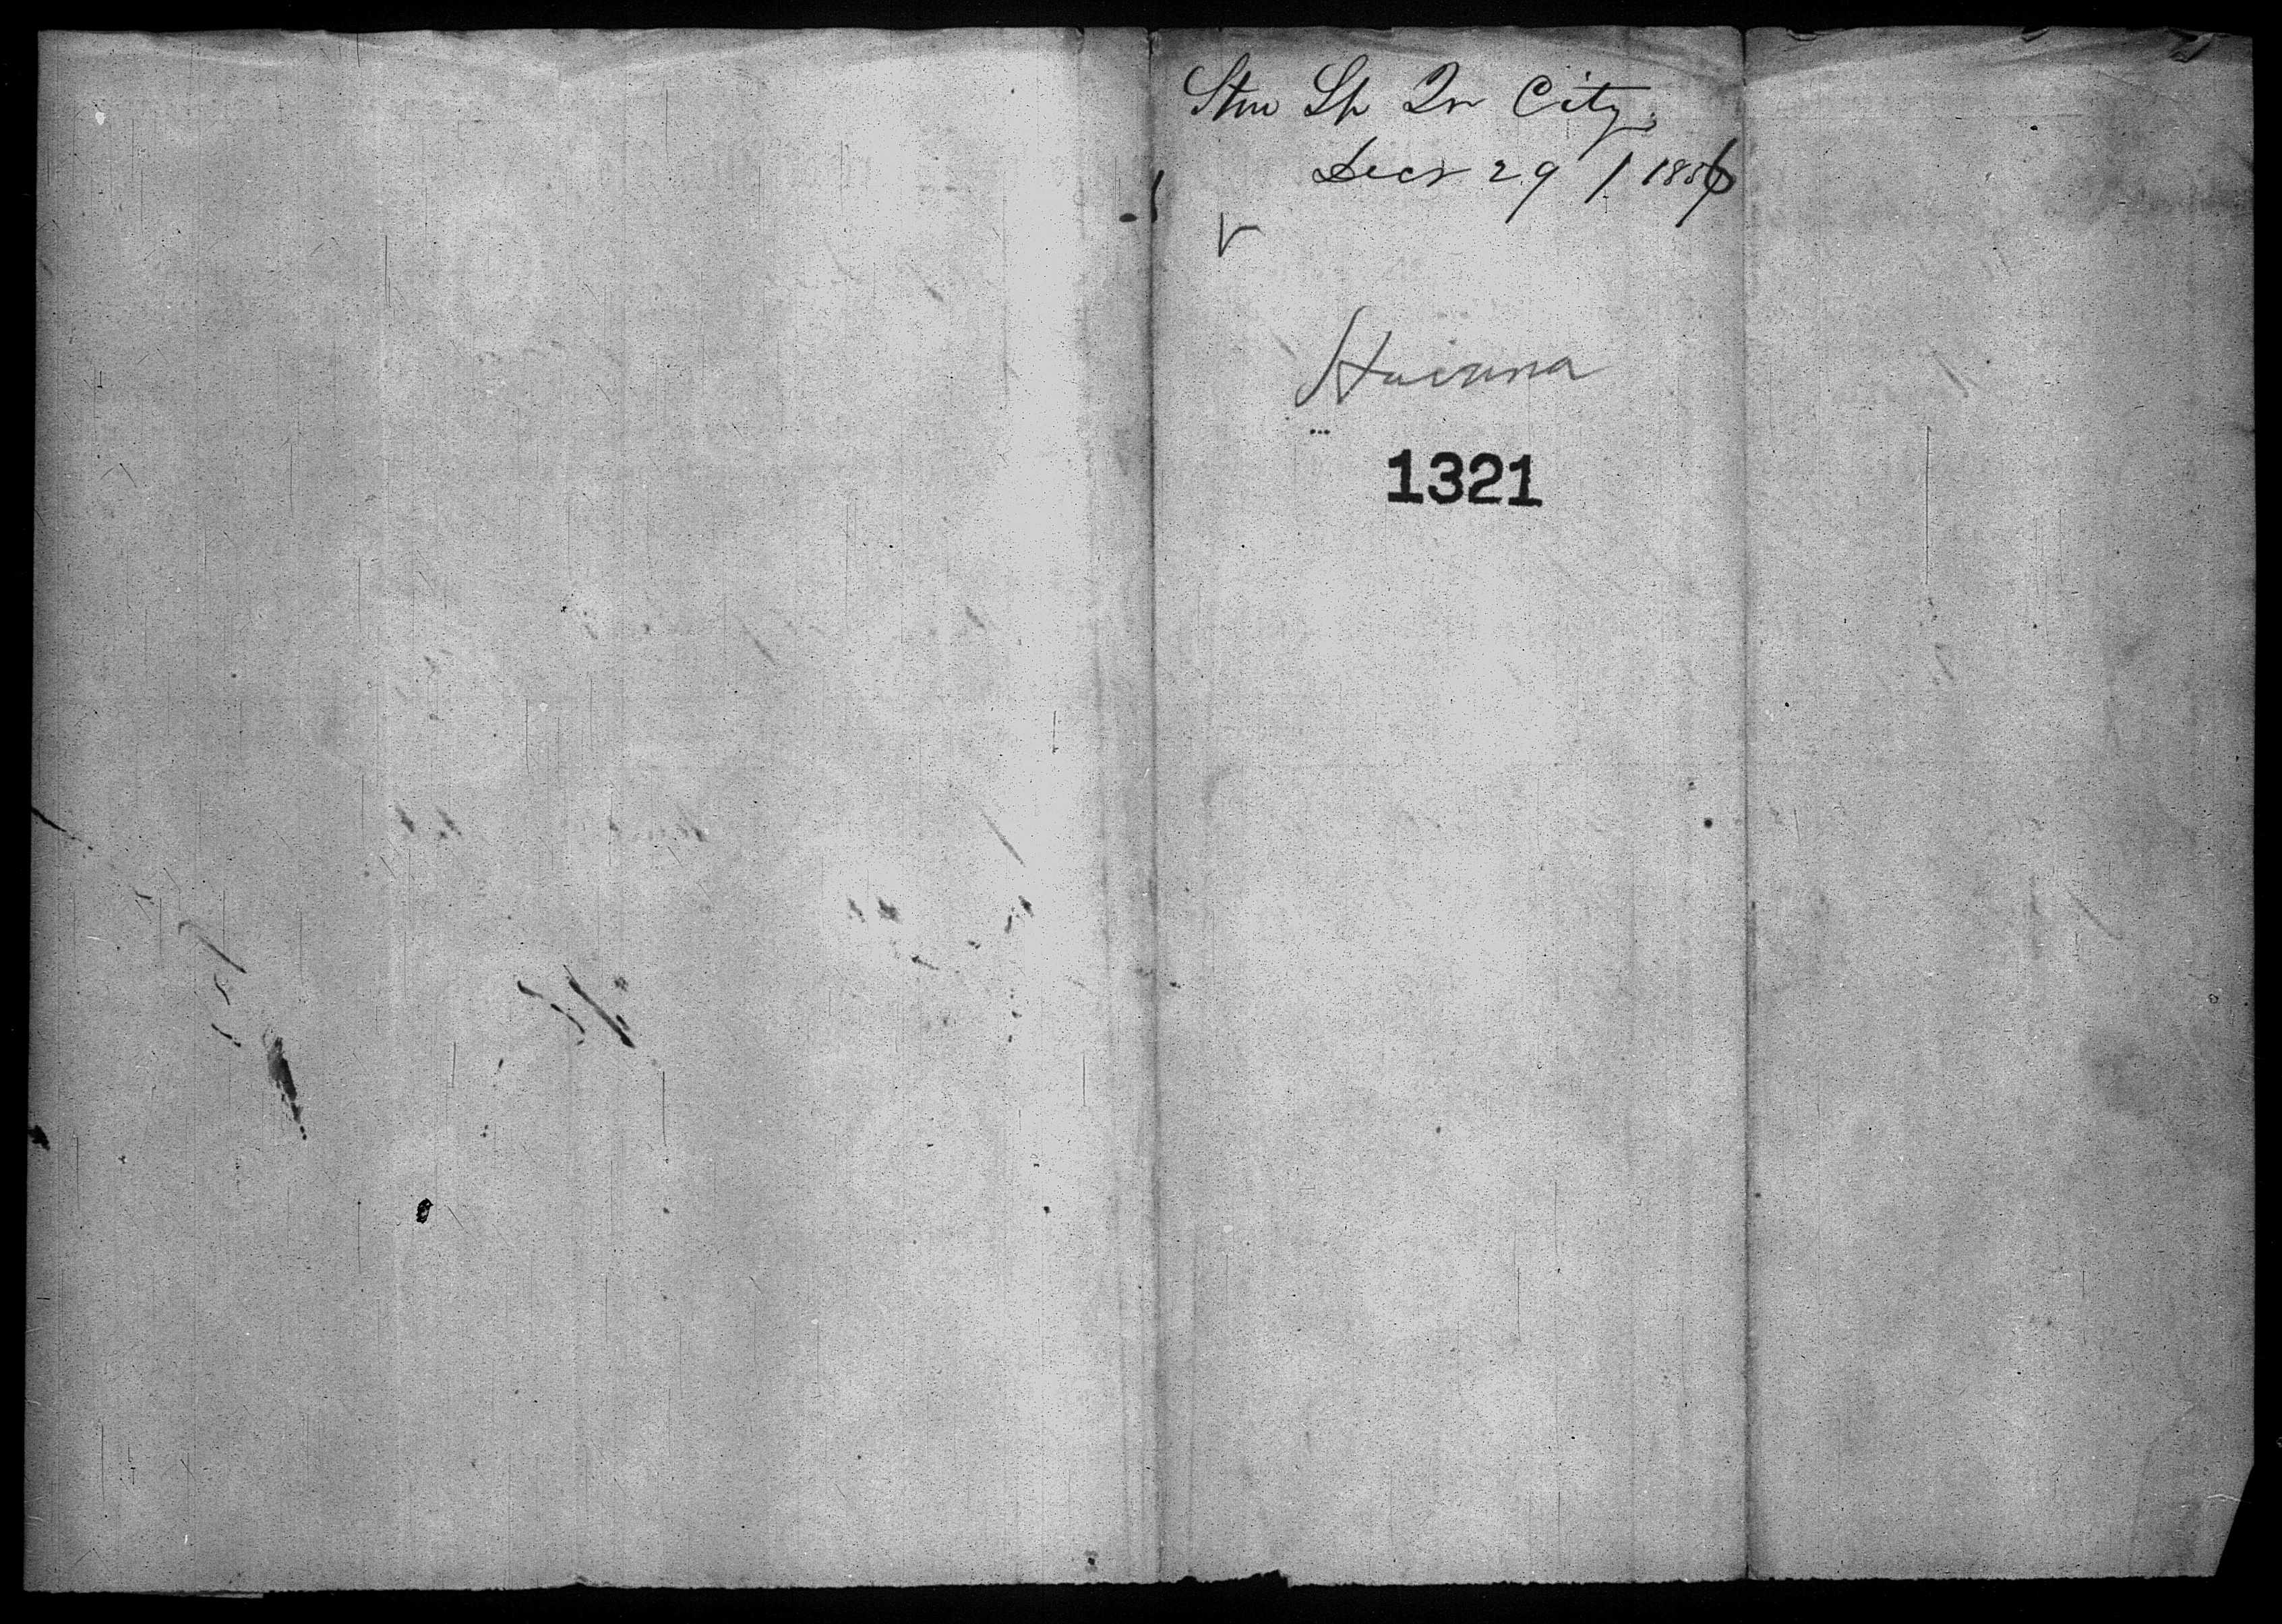 Stm Sh Qn City
Decr 29 / 1856
Havana
1321